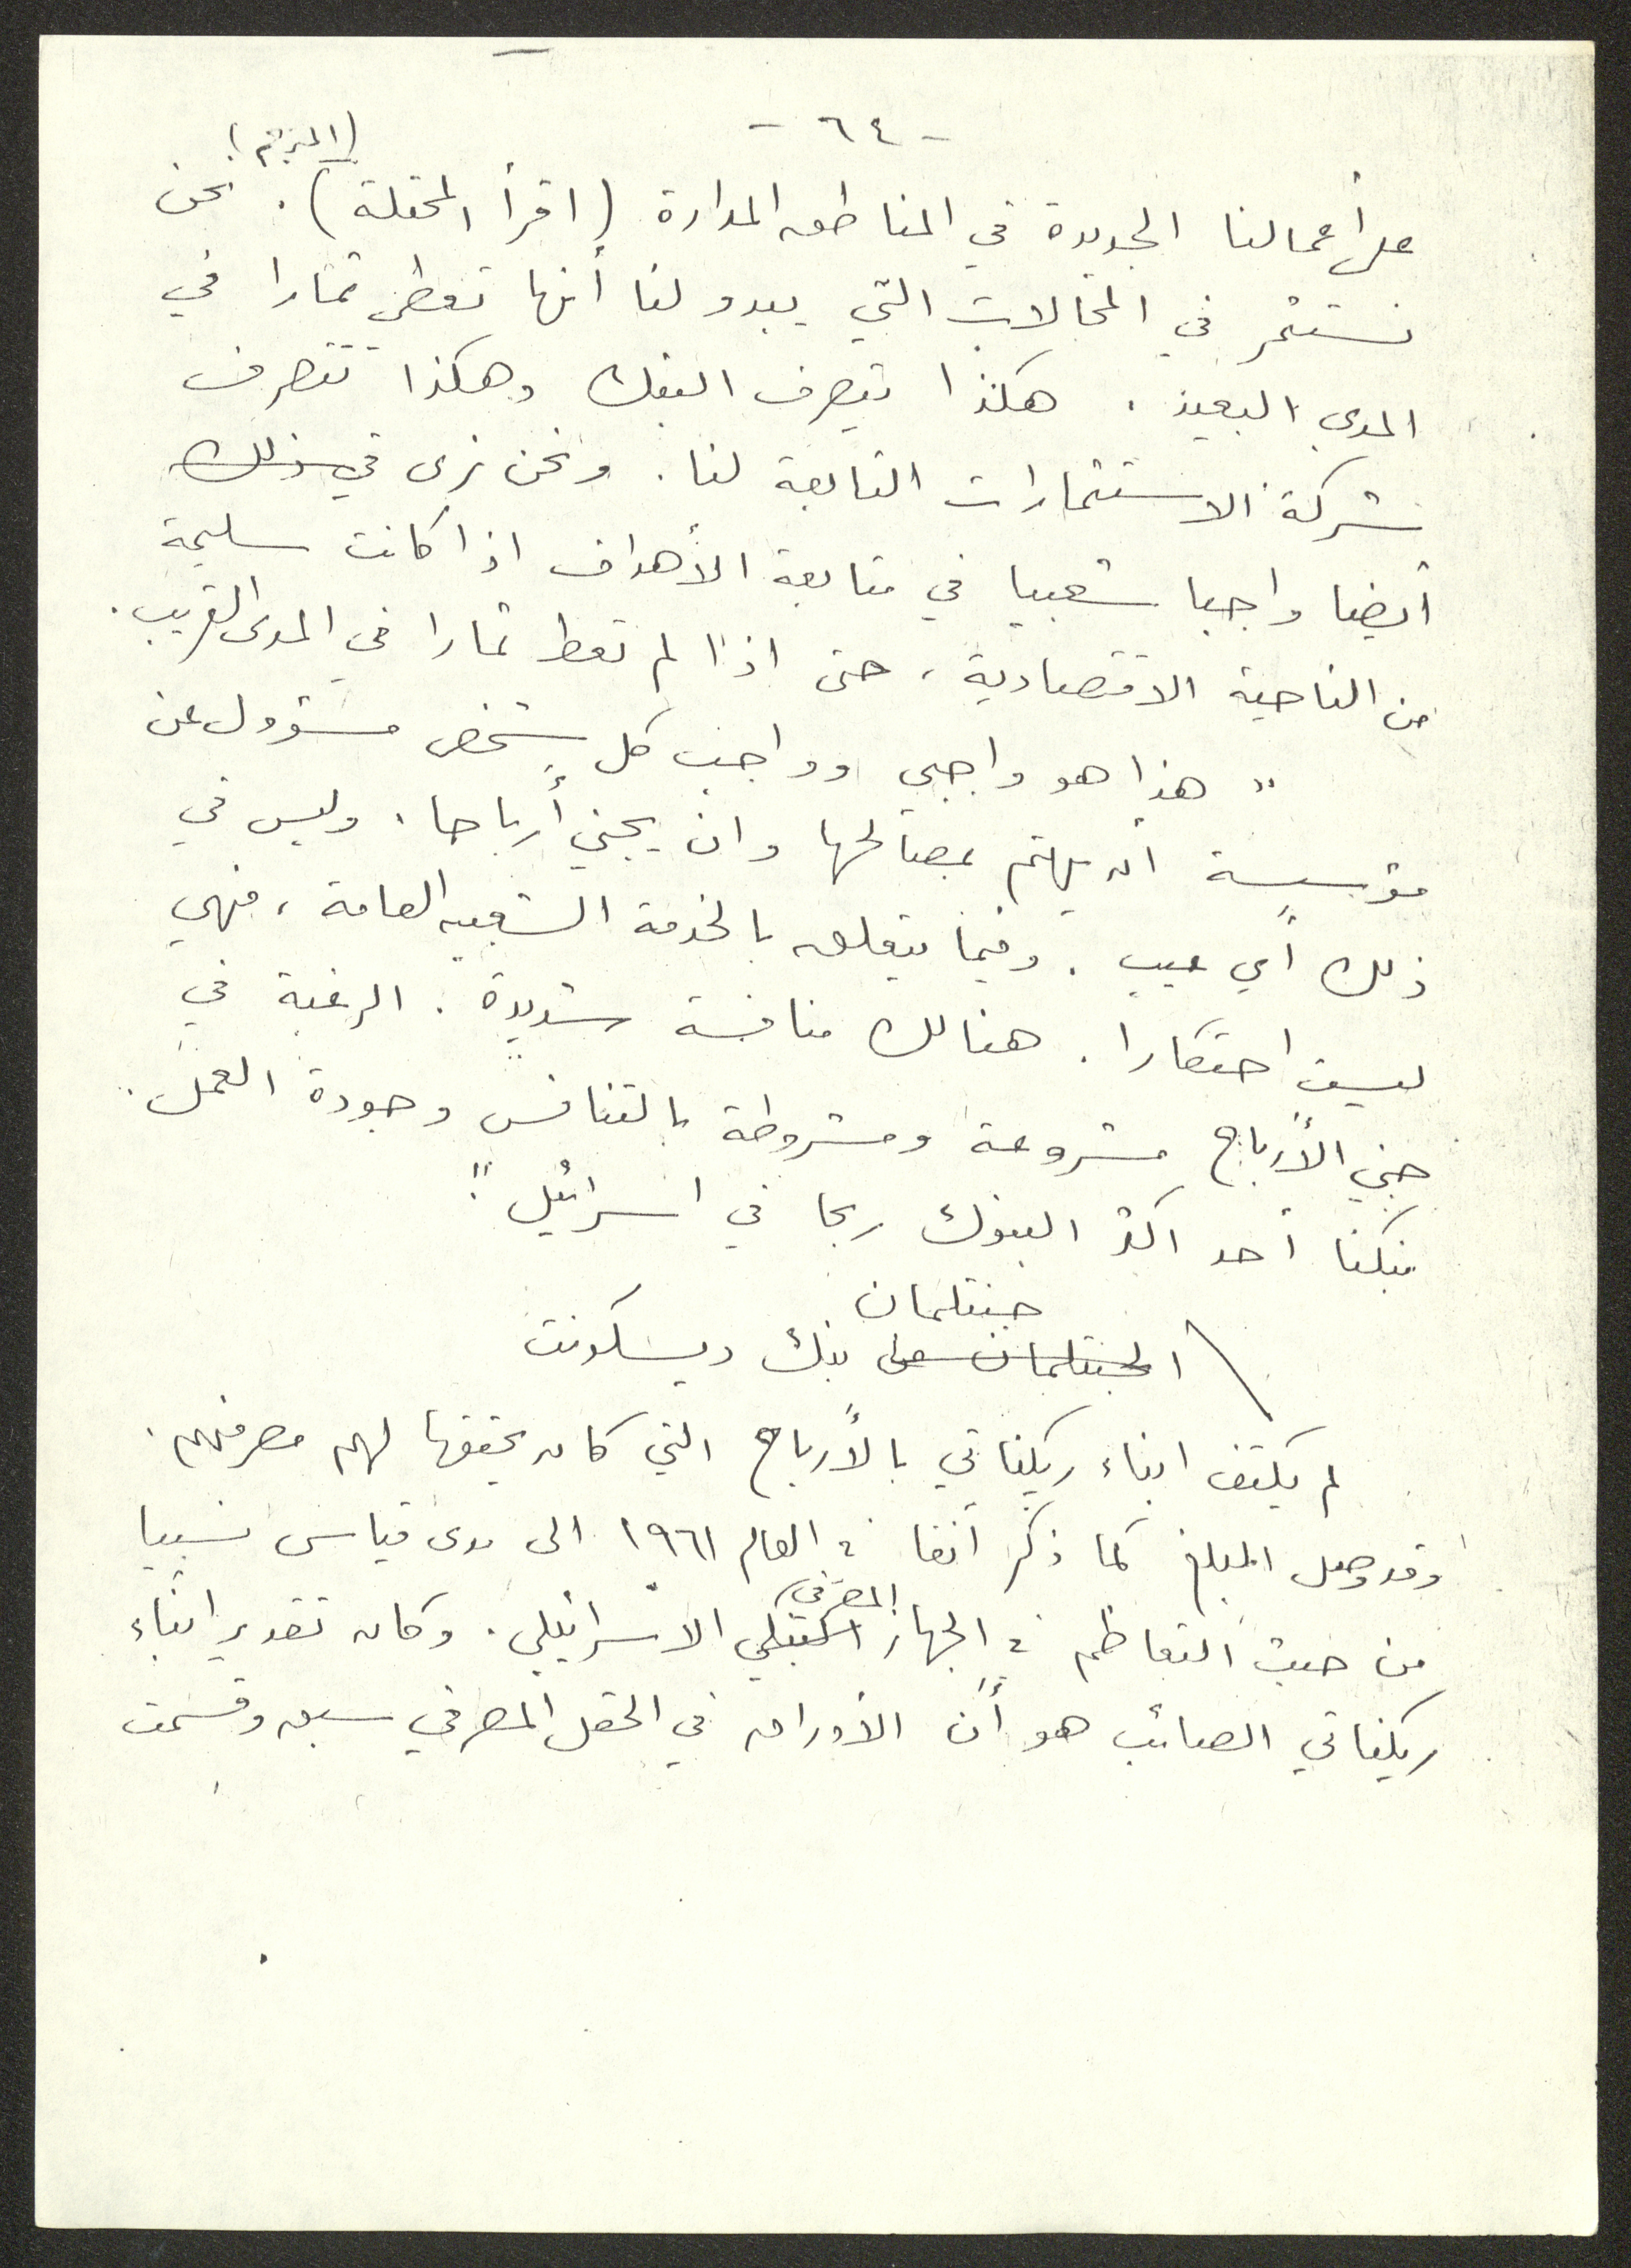 - ٦٤ -
(المترجم)
على أعمالنا الجديدة في المناطق المدارة (اقرأ المحتلة). نحن
نستثمر في المجالات التي يبدو لنا أنها تعطي ثمارا في
المدى البعيد. هكذا يتصرف البنك وهكذا تتصرف
شركة الاستثمارات التابعة لنا. ونحن نرى في ذلك
أيضا واجبا شعبيا في متابعة الأهداف اذا كانت سليمة
من الناحية الاقتصادية، حتى اذا لم تعط ثمارا في المدى القريب.
" هذا هو واجبي وواجب كل شخص مسؤول عن
مؤسسة ان يهتم بمصالحها وان يجني أرباحا. وليس في
ذلك أي عيب. وفيما يتعلق بالخدمة الشعبيه العامة، فهي
ليست احتكارا. هنالك منافسة شديدة. الرغبة في
جني الأرباح مشروعة ومشروطة بالتنافس وجودة العمل.
بنكنا أحد اكثر البنوك ربحا في اسرائيل".
جنتلمان
الجنتلمان من بنك ديسكونت
لم يكتف ابناء ريكناتي بالأرباح التي كان يحققها لهم مصرفهم.
وقد وصل المبلغ كما ذكر انفا في العام ١٩٦١ الى مدى قياسي نسبيا
المصرفي
من حيث التعاظم في الجهاز البنكي الاسرائيلي. وكان تقدير ابناء
ريكناتي الصائب هو أن الأوراق في الحقل المصرفي سبق وقسمت